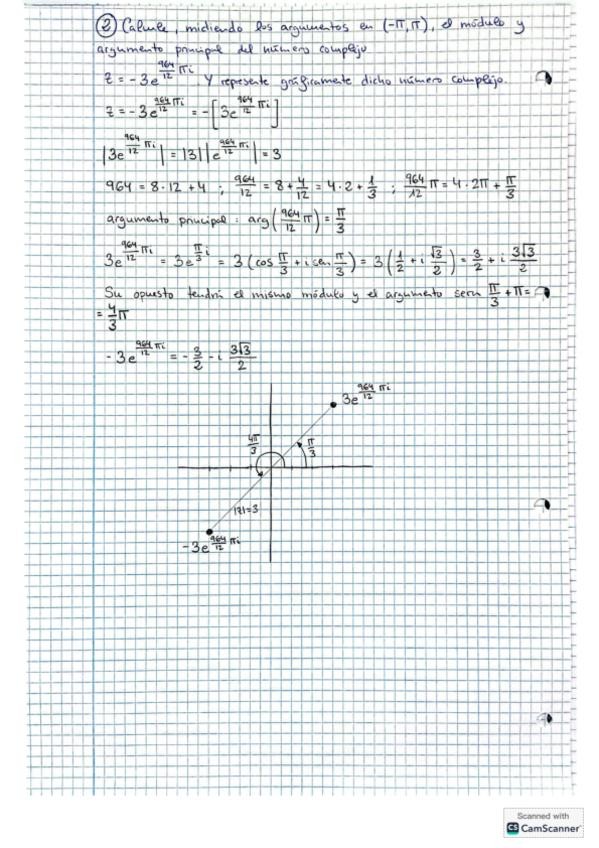 ② Calcule, midiendo los argumentos en (-π, π), el módulo y
argumento principal del número complejo
z = -3e^(964/12 πi) y represente gráficamente dicho número complejo.
z = -3e^(964/12 πi) = -[3e^(964/12 πi)]
|3e^(964/12 πi)| = |3||e^(964/12 πi)| = 3
964 = 8·12 + 4 ; 964/12 = 8 + 4/12 = 4·2 + 1/3 ; 964/12 π = 4·2π + π/3
argumento principal : arg(964/12 π) = π/3
3e^(964/12 πi) = 3e^(π/3 i) = 3(cos π/3 + i sen π/3) = 3(1/2 + i √3/2) = 3/2 + i 3√3/2
Su opuesto tendrá el mismo módulo y el argumento será π/3 + π =
= 4/3 π
-3e^(964/12 πi) = -3/2 - i 3√3/2
3e^(964/12 πi)
4π/3
π/3
|z|=3
-3e^(964/12 πi)
Scanned with
CS CamScanner